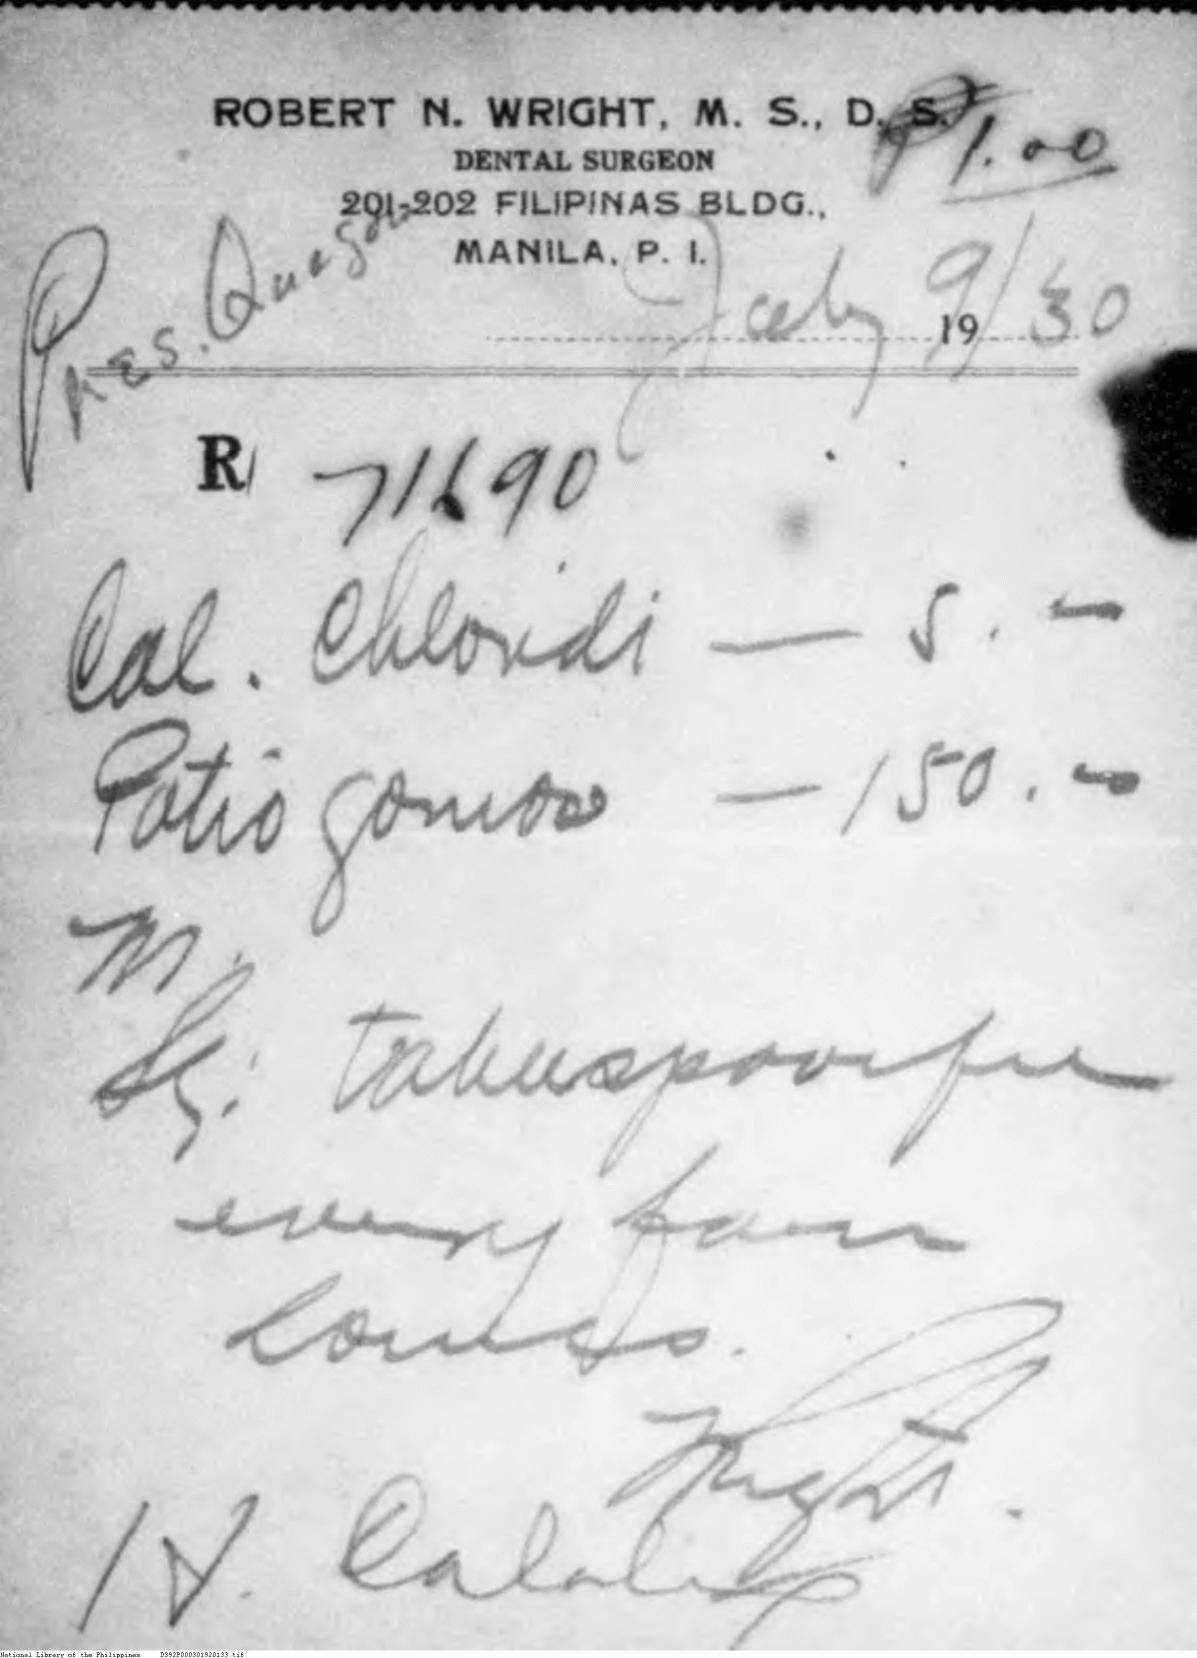 ROBERT N. WRIGHT, M. S., D. S.
₱1.00
DENTAL SURGEON
201-202 FILIPINAS BLDG.,
MANILA, P. I.
Pres. Quezon
July 9/30
19
R/ 71690
Cal. Chloridi — 5. -
Potio gomoso — 150. -
M.
Sg: tablespoonful
every four
hours.
Wright.
National Library of the Philippines D392P000301920133.tif